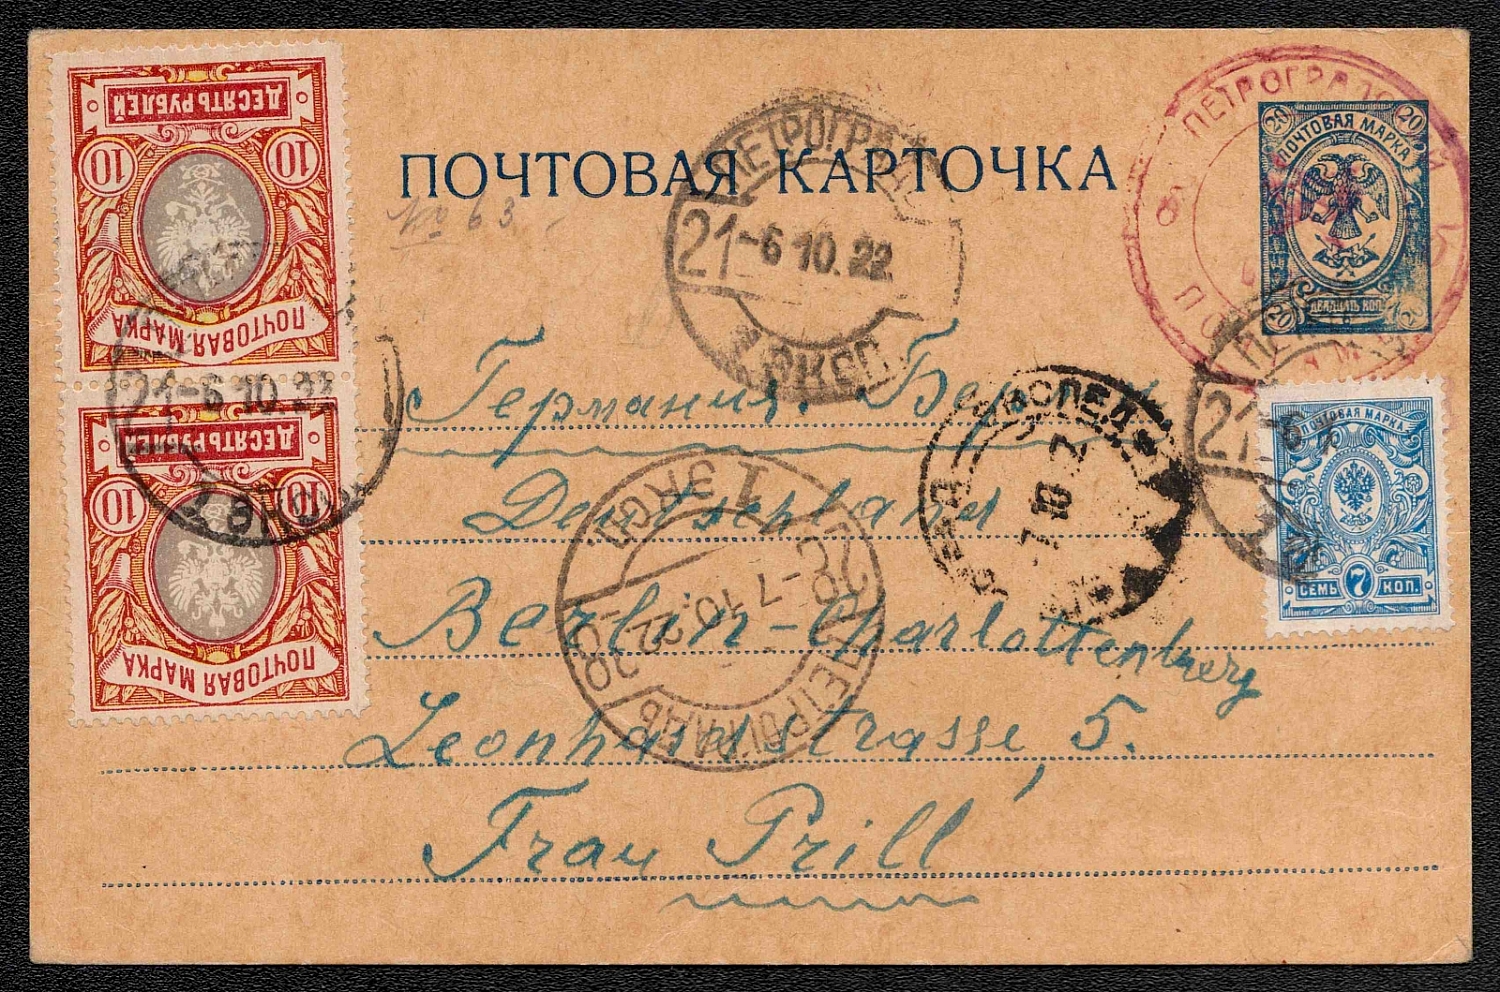 ПОЧТОВАЯ КАРТОЧКА
№ 63
20 20
ПОЧТОВАЯ МАРКА
ДВАДЦАТЬ КОП
20
ДЕСЯТЬ РУБЛЕЙ
10 10
ПОЧТОВАЯ МАРКА
ДЕСЯТЬ РУБЛЕЙ
10 10
ПОЧТОВАЯ МАРКА
ПОЧТОВАЯ МАРКА
СЕМЬ 7 КОП.
ПЕТРОГРАД
21 -6 10.22
1 ЭКСП.
21 -6 10 22
21 -6
ПЕТРОГРАДЪ
-7.10.22
1 ЭКСП.
7 10
Германия. Берлин
Deutschland
Berlin-Charlottenburg
Leonhardstrasse 5.
Frau Prill